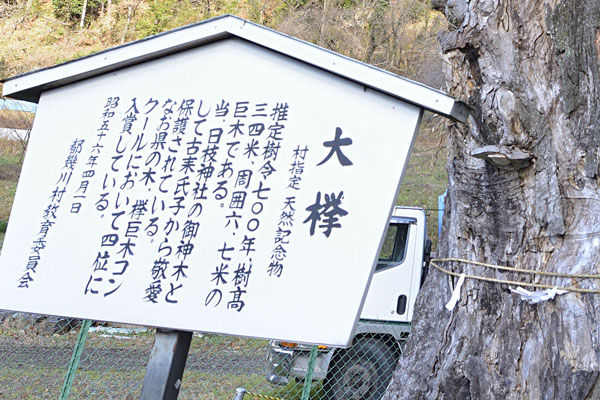 大欅
村指定 天然記念物
推定樹令七〇〇年、樹高
三四米、周囲六、七米の
巨木である。
当、日枝神社の御神木と
して古来氏子から敬愛
保護されている。
なお県の木、欅巨木コン
クールにおいて四位に
入賞している。
昭和五十六年四月一日
都幾川村教育委員会